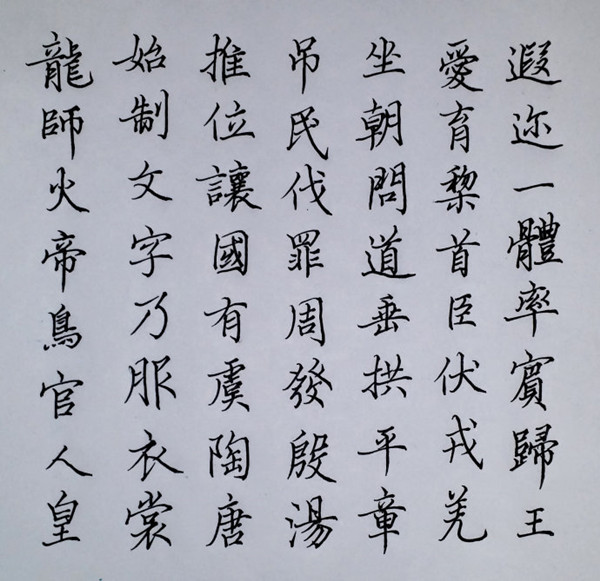 龍師火帝鳥官人皇
始制文字乃服衣裳
推位讓國有虞陶唐
吊民伐罪周發殷湯
坐朝問道垂拱平章
愛育黎首臣伏戎羌
遐迩一體率賓歸王